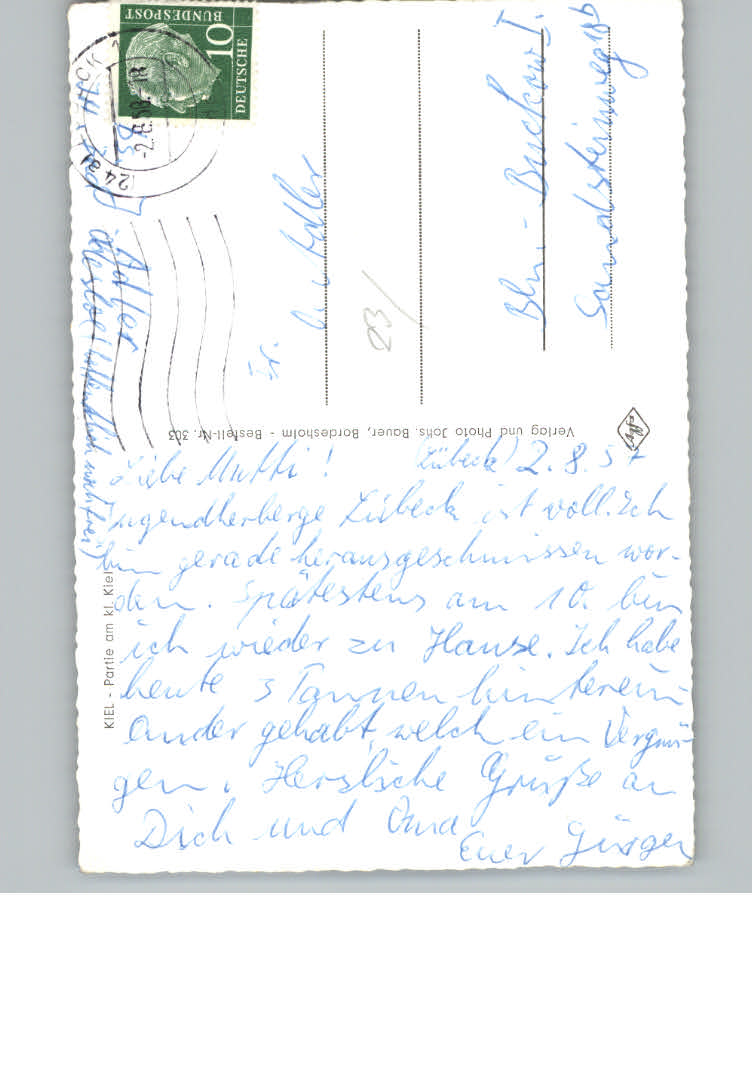 Liebe Mutti! (Lübeck) 2.8.57
Jugendherberge Lübeck ist voll. Ich
bin gerade herausgeschmissen wor-
den. Spätestens am 10. bin
ich wieder zu Hause. Ich habe
heute 3 Pannen hinterein-
ander gehabt, welch ein Vergnü-
gen. Herzlische Grüße an
Dich und Oma
Euer Jürgen
Fr.
Adler
Bln.-Buckow I.
Adler
DEUTSCHE
BUNDESPOST
10
Verlag und Photo Johs. Bauer, Bordesholm - Bestell-Nr. 303
KIEL - Partie am kl. Kiel
23/